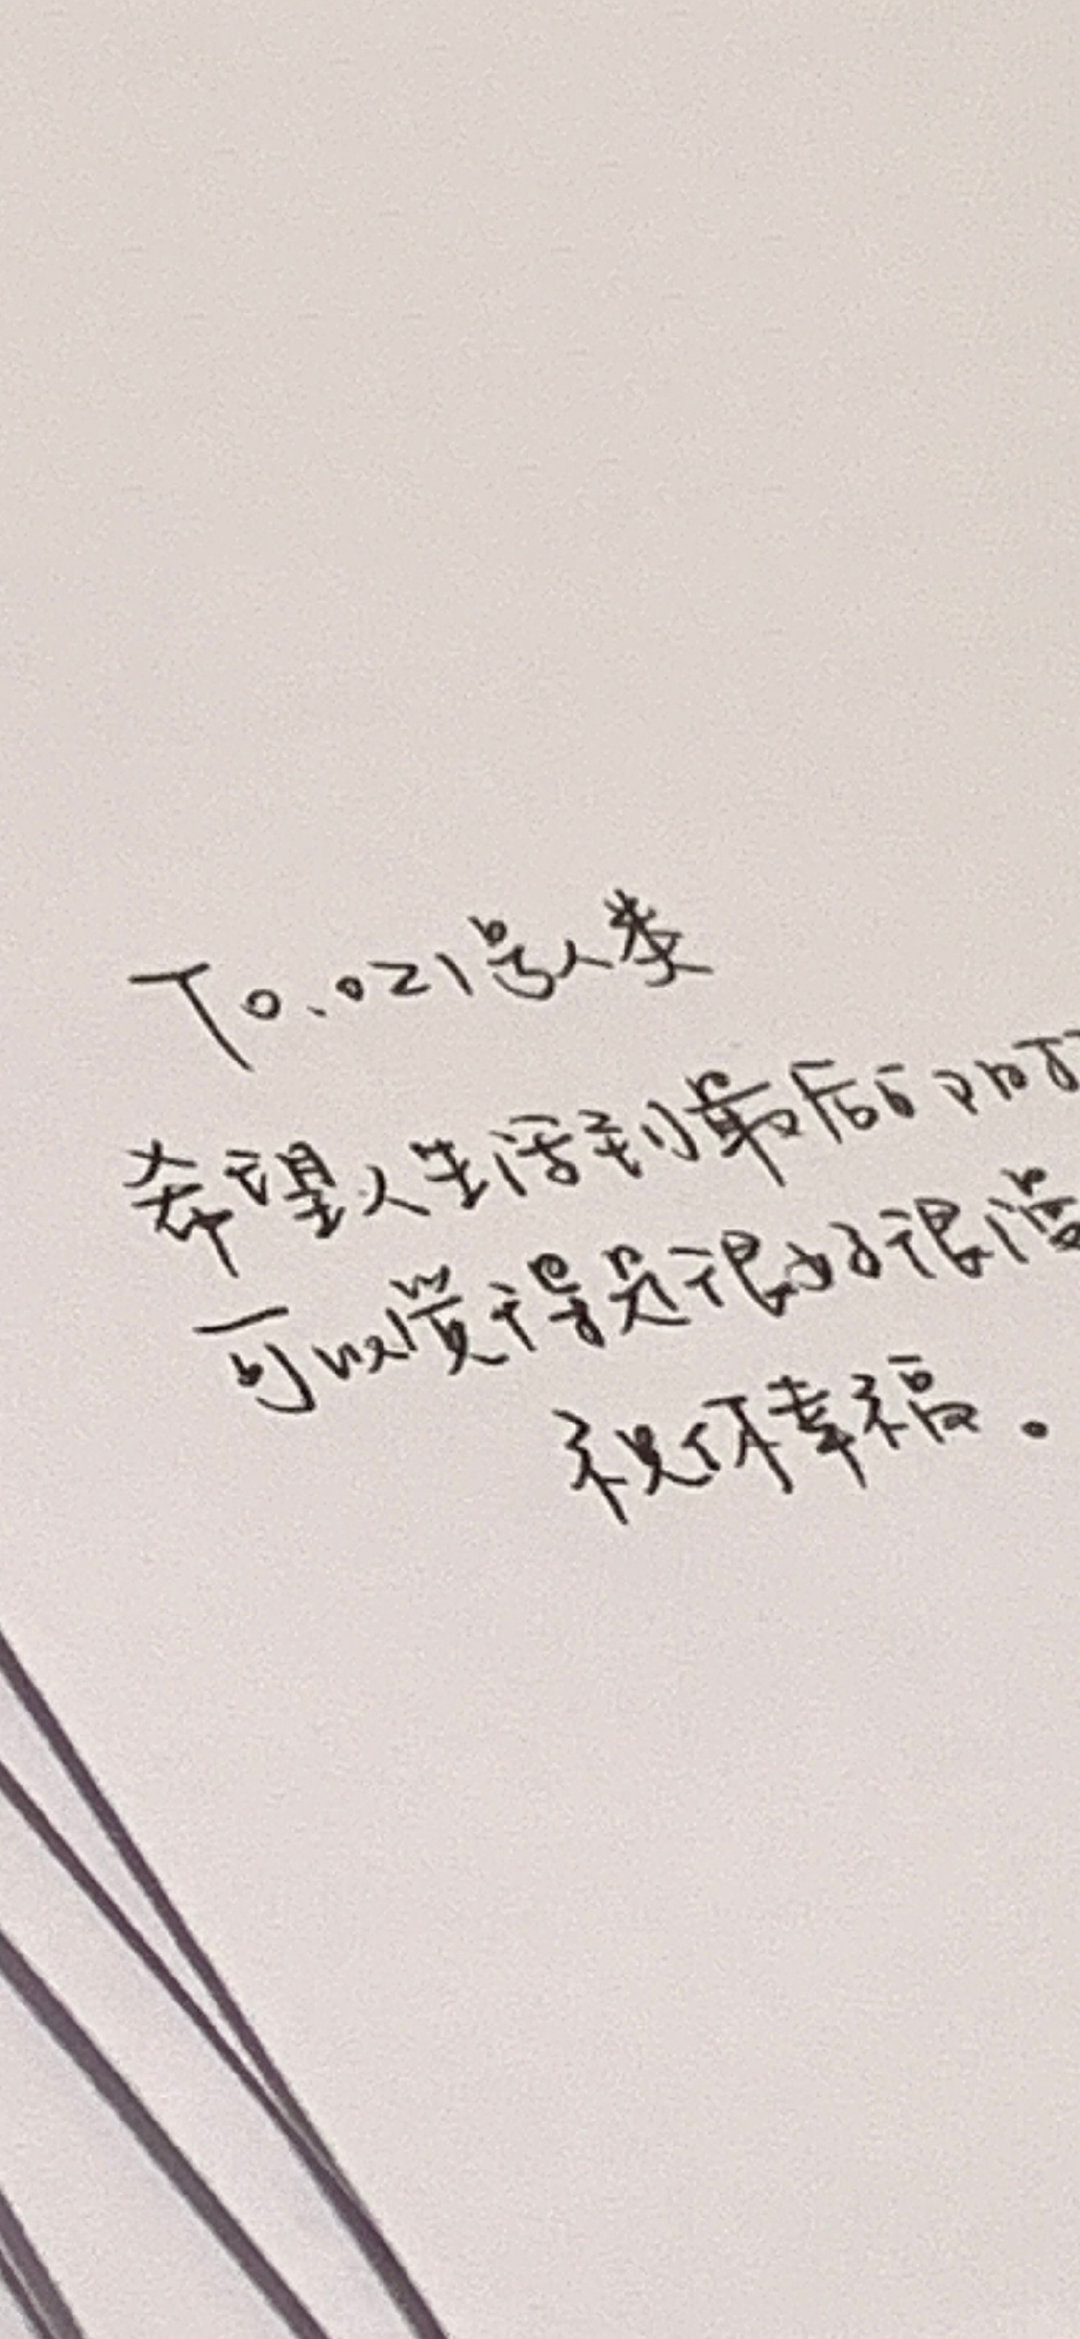 To.021号人类
希望人生活到最后的时
可以觉得是很好很满
祝你幸福.